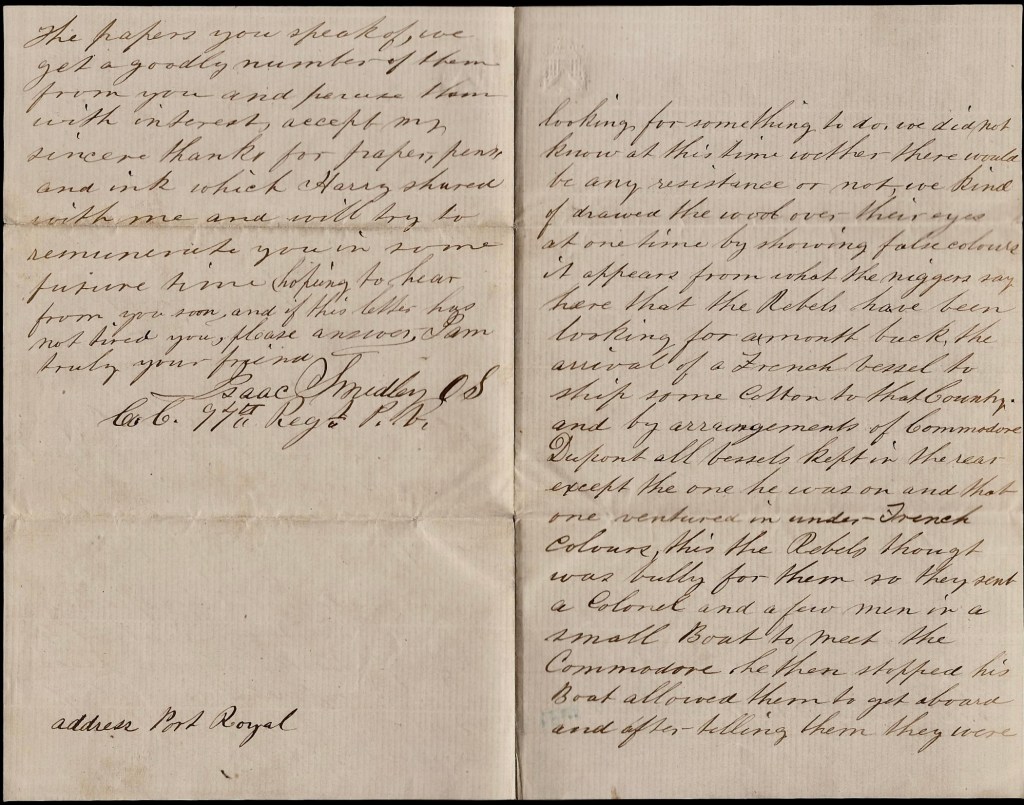 The papers you speak of, we
get a goodly number of them
from you and peruse them
with interest, accept my
sincere thanks for paper, pens,
and ink which Harry shared
with me and will try to
remunerate you in some
future time hoping to hear
from you soon, and if this letter has
not tired you, please answer, I am
truly your friend
Isaac Smedley OS
Co C. 97th Regt P.V.
address Port Royal
looking for something to do, we did not
know at this time wether there would
be any resistance or not, we kind
of drawed the wool over their eyes
at one time by showing false colours
it appears from what the niggers say
here that the Rebels have been
looking for a month back, the
arrival of a French vessel to
ship some Cotton to that Country.
and by arrangements of Commodore
Dupont all vessels kept in the rear
except the one he was on and that
one ventured in under French
Colours, this the Rebels thougt
was bully for them so they sent
a Colonel and a few men in a
small Boat to meet the
Commodore he then stopped his
Boat allowed them to get aboard
and after telling them they were